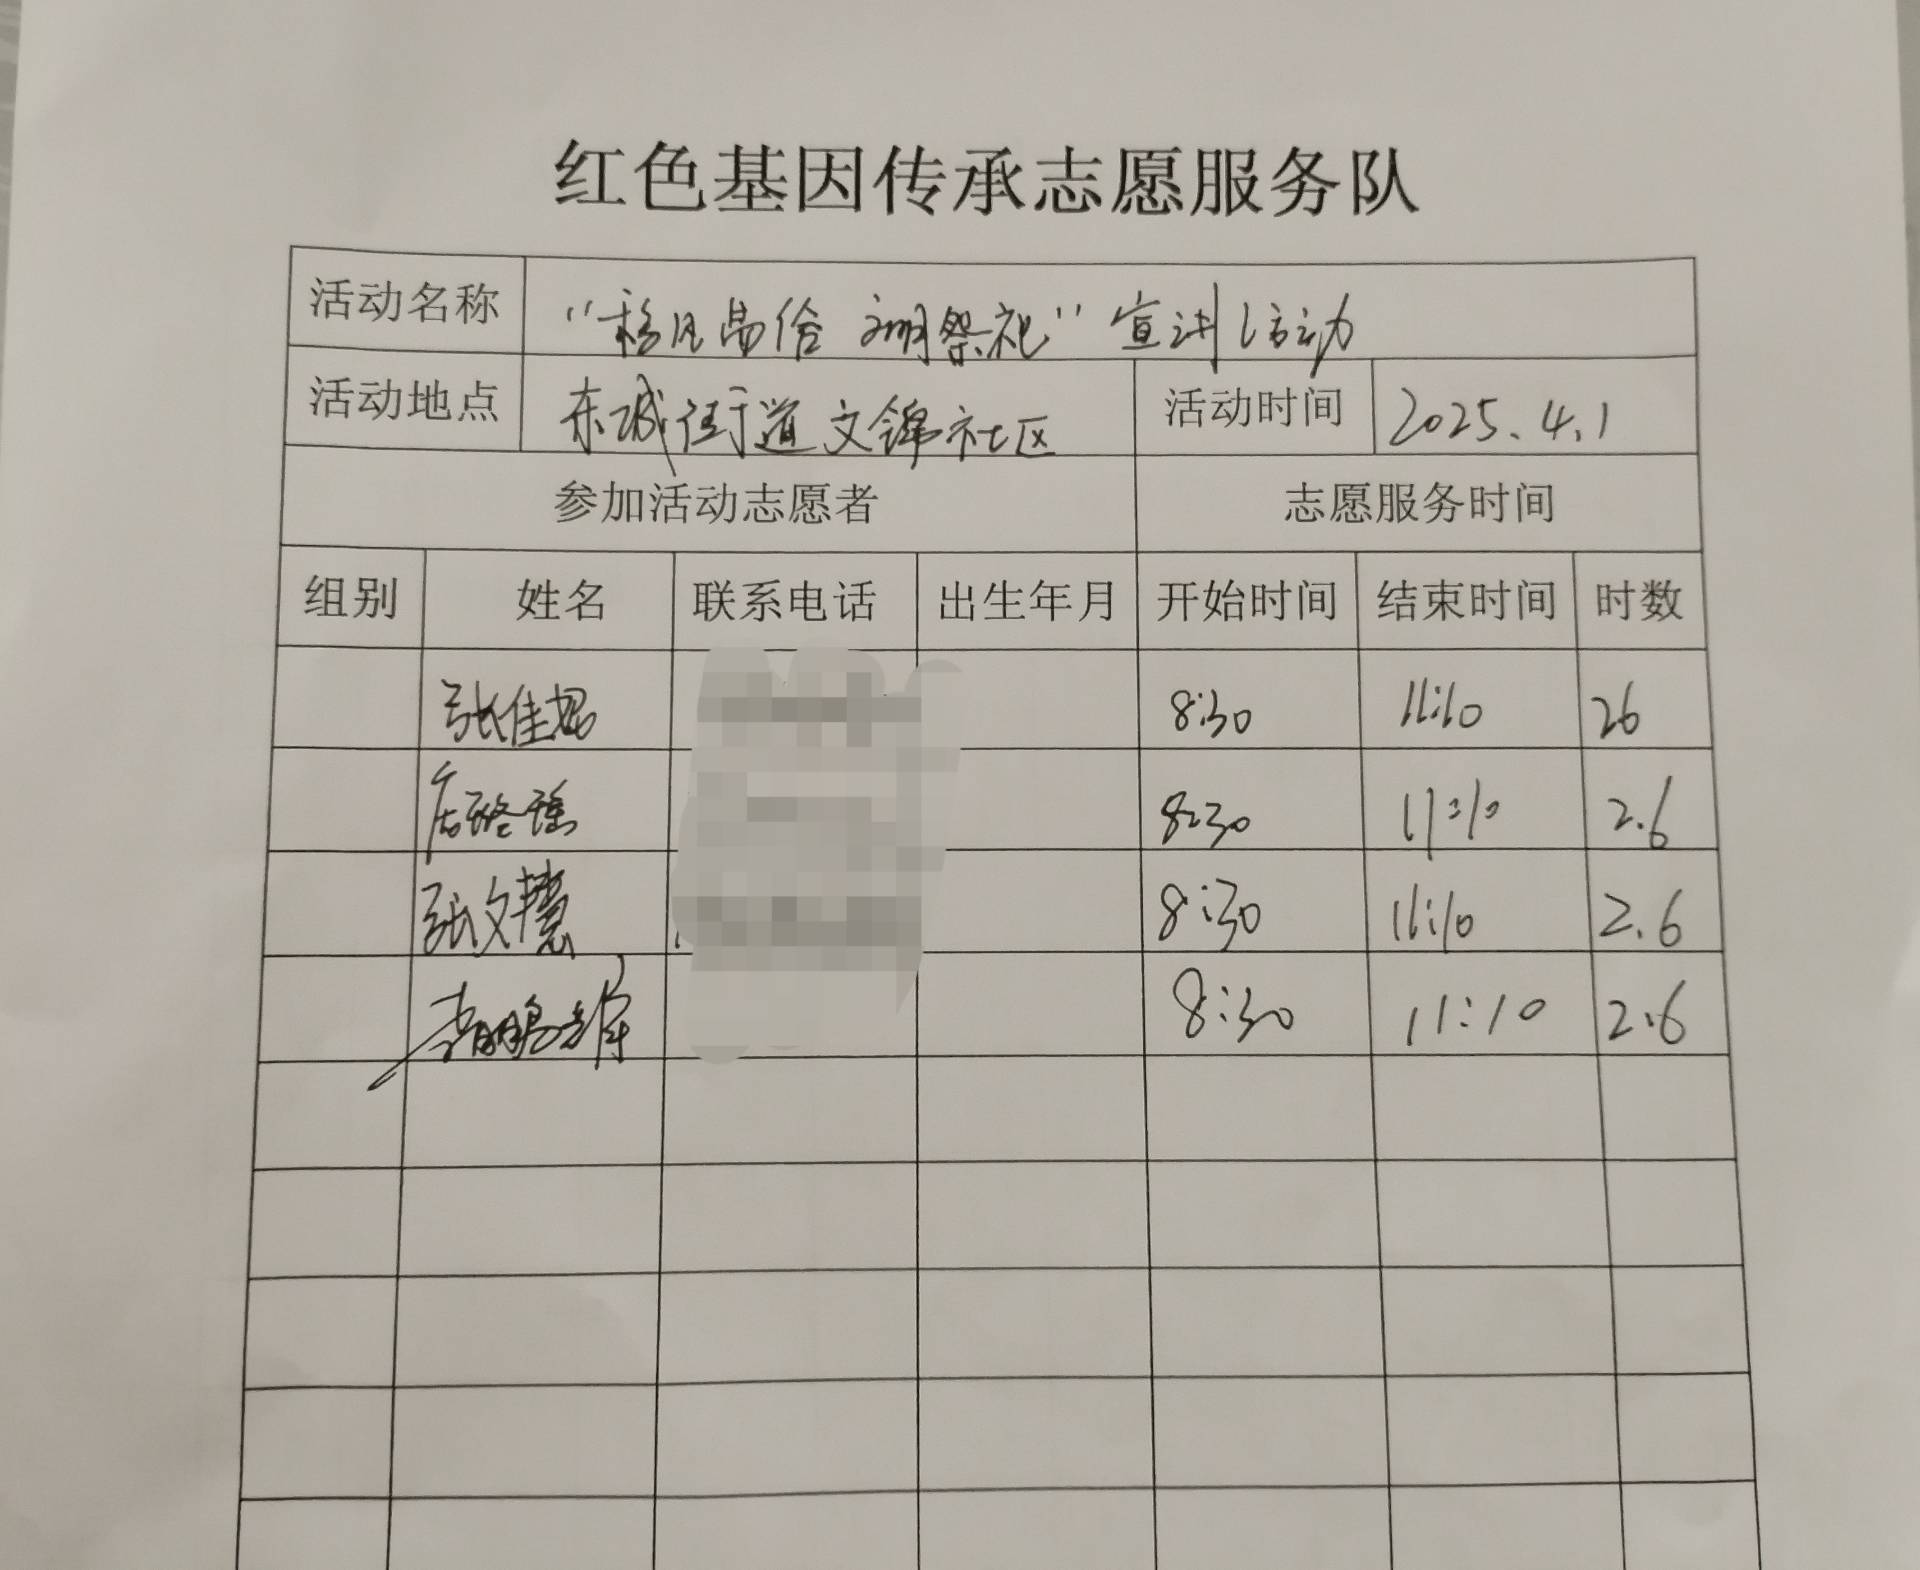 红色基因传承志愿服务队
活动名称 “移风易俗 文明祭祀”宣讲活动
活动地点 东城街道文锦社区 活动时间 2025.4.1
参加活动志愿者 志愿服务时间
组别 姓名 联系电话 出生年月 开始时间 结束时间 时数
张佳 8:30 11:10 26
瑶 8:30 11:10 2.6
张文慧 8:30 11:10 2.6
李鹏 8:30 11:10 2.6